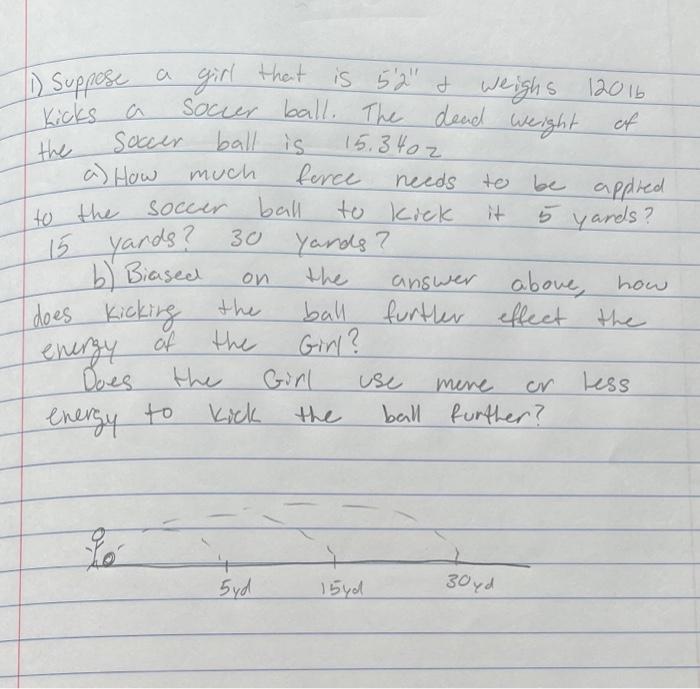 1) Suppose a girl that is 5'2" & weighs 120 lb
kicks a soccer ball. The dead weight of
the soccer ball is 15.34oz
a) How much force needs to be applied
to the soccer ball to kick it 5 yards?
15 yards? 30 yards?
b) Biased on the answer above, how
does kicking the ball further effect the
energy of the Girl?
Does the Girl use more or less
energy to kick the ball further?
5yd 15yd 30yd